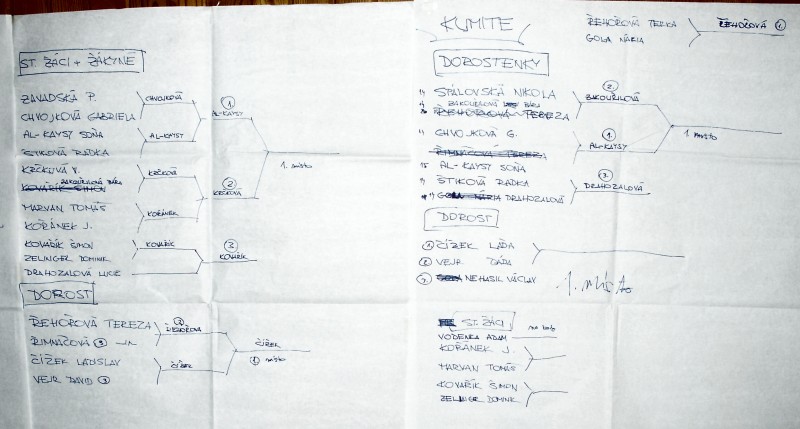 ST. ŽÁCI + ŽÁKYNĚ
ZAVADSKÁ P.
CHVOJKOVÁ GABRIELA
AL-KAYSY SOŇA
ŠTIKOVÁ RADKA
KRČKOVÁ V.
ZAKOUŘILOVÁ BÁRA
KOVÁŘÍK ŠIMON
MARVAN TOMÁŠ
KOŘÁNEK J.
KOVAŘÍK ŠIMON
ZELINGER DOMINIK
DRAHOZALOVÁ LUCIE
CHVOJKOVÁ
AL-KAYSY
KRČKOVÁ
KOŘÁNEK
KOVAŘÍK
1
AL-KAYSY
2
KRČKOVÁ
3
KOVAŘÍK
1. místo
DOROST
ŘEHOŘOVÁ TEREZA
ŘIMNÁČOVÁ 3
ČÍŽEK LADISLAV
VEJR DAVID 3
2
ŘEHOŘOVÁ
ČÍŽEK
ČÍŽEK
1 místo
KUMITE
ŘEHOŘOVÁ TERKA
GOLA MÁRIA
ŘEHOŘOVÁ 1.
DOROSTENKY
SPÁLOVSKÁ NIKOLA
ZAKOUŘILOVÁ BÁRA
ŘEHOŘOVÁ TEREZA
CHVOJKOVÁ G.
TEREZA
AL-KAYSY SOŇA
ŠTIKOVÁ RADKA
GOLA MÁRIA DRAHOZALOVÁ
2.
ZAKOUŘILOVÁ
1.
AL-KAYSY
3.
DRAHOZALOVÁ
1 místo
DOROST
1 ČÍŽEK LÁĎA
2 VEJR DÁĎA
3 NEHASIL VÁCLAV
1. místo
ST. ŽÁCI
VODĚNKA ADAM
KOŘÁNEK J.
MARVAN TOMÁŠ
KOVAŘÍK ŠIMON
ZELINGER DOMINIK